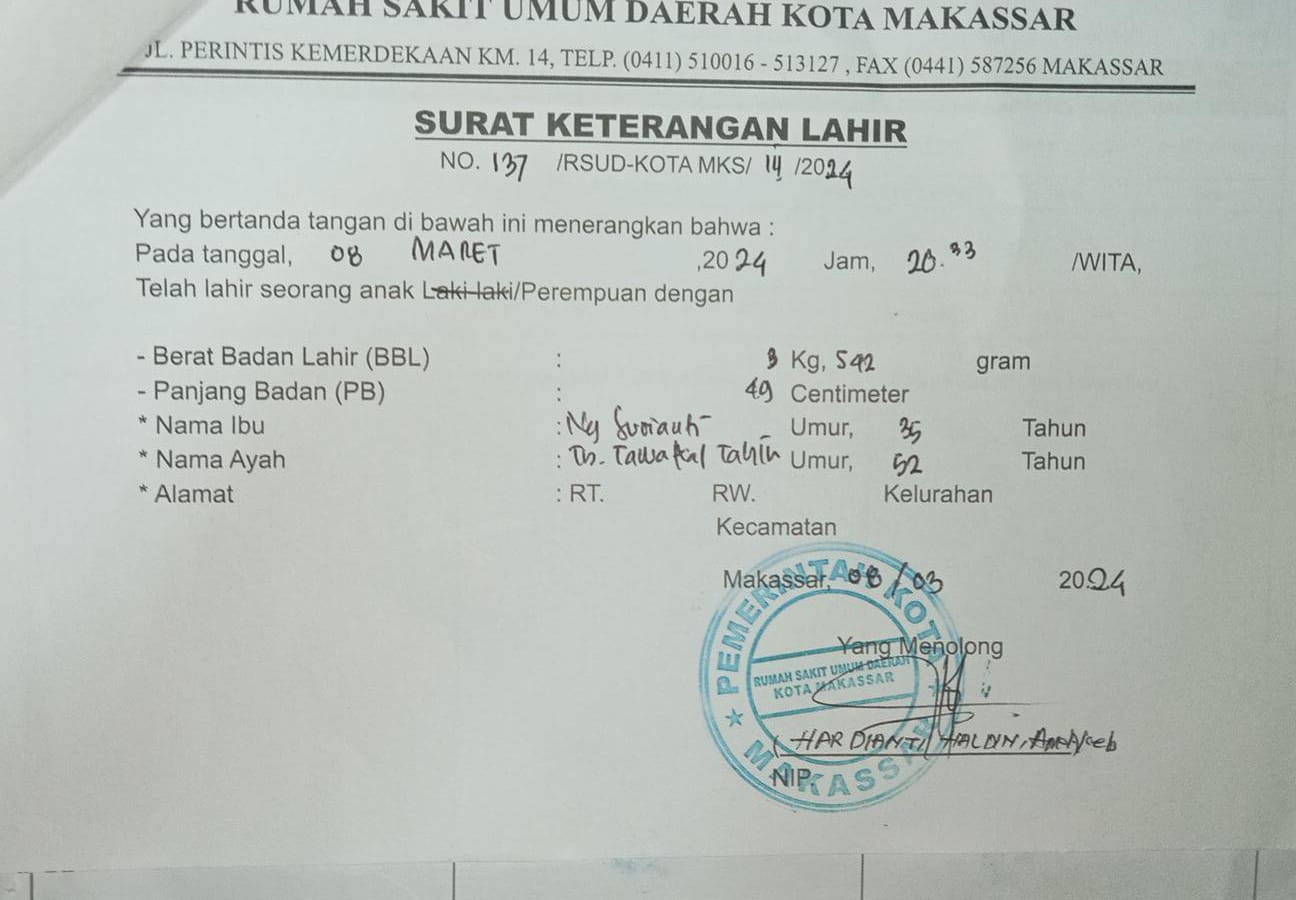 RUMAH SAKIT UMUM DAERAH KOTA MAKASSAR
JL. PERINTIS KEMERDEKAAN KM. 14, TELP. (0411) 510016 - 513127 , FAX (0441) 587256 MAKASSAR
SURAT KETERANGAN LAHIR
NO. 137 /RSUD-KOTA MKS/ /2024
Yang bertanda tangan di bawah ini menerangkan bahwa :
Pada tanggal, 08 MARET ,2024 Jam, 20.33 /WITA,
Telah lahir seorang anak Laki-laki/Perempuan dengan
- Berat Badan Lahir (BBL) : 3 Kg, 542 gram
- Panjang Badan (PB) : 49 Centimeter
* Nama Ibu : Ny Umur, 35 Tahun
* Nama Ayah : Tn. Tawakal Tahir Umur, 52 Tahun
* Alamat : RT. RW. Kelurahan
Kecamatan
Makassar, 08/03 2024
Yang Menolong
PEMERINTAH KOTA
RUMAH SAKIT UMUM DAERAH
KOTA MAKASSAR
( HARDIANTI
NIP.
★ MAKASSAR ★